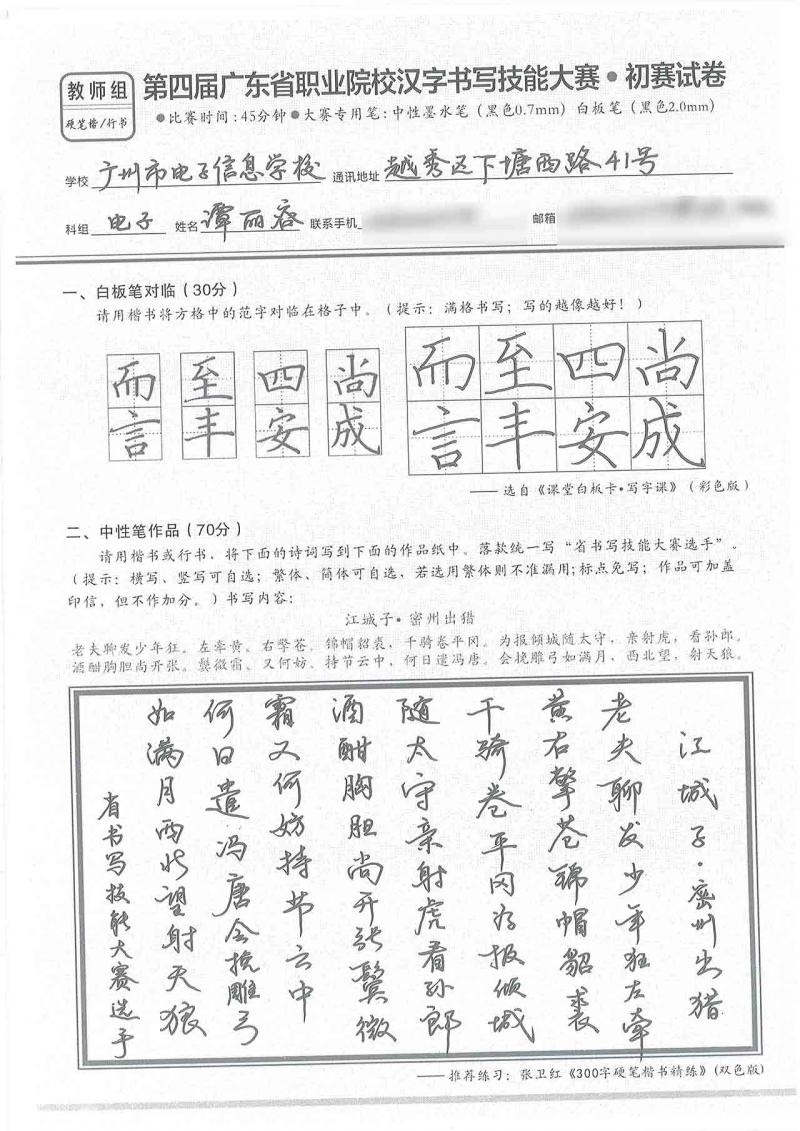 教师组
硬笔楷/行书
第四届广东省职业院校汉字书写技能大赛•初赛试卷
●比赛时间:45分钟●大赛专用笔:中性墨水笔(黑色0.7mm)白板笔(黑色2.0mm)
学校 广州市电子信息学校 通讯地址 越秀区下塘西路41号
科组 电子 姓名 谭丽容 联系手机 邮箱
一、白板笔对临(30分)
请用楷书将方格中的范字对临在格子中。(提示:满格书写;写的越像越好!)
而 至 四 尚 而 至 四 尚
言 丰 安 成 言 丰 安 成
——选自《课堂白板卡•写字课》(彩色版)
二、中性笔作品(70分)
请用楷书或行书,将下面的诗词写到下面的作品纸中。落款统一写“省书写技能大赛选手”。
(提示:横写、竖写可自选;繁体、简体可自选,若选用繁体则不准漏用;标点免写;作品可加盖
印信,但不作加分。)书写内容:
江城子•密州出猎
老夫聊发少年狂。左牵黄。右擎苍。锦帽貂裘,千骑卷平冈。为报倾城随太守,亲射虎,看孙郎。
酒酣胸胆尚开张。鬓微霜。又何妨。持节云中,何日遣冯唐。会挽雕弓如满月,西北望,射天狼。
江城子·密州出猎
老夫聊发少年狂左牵
黄右擎苍锦帽貂裘
千骑卷平冈为报倾城
随太守亲射虎看孙郎
酒酣胸胆尚开张鬓微
霜又何妨持节云中
何日遣冯唐会挽雕弓
如满月西北望射天狼
省书写技能大赛选手
——推荐练习:张卫红《300字硬笔楷书精练》(双色版)